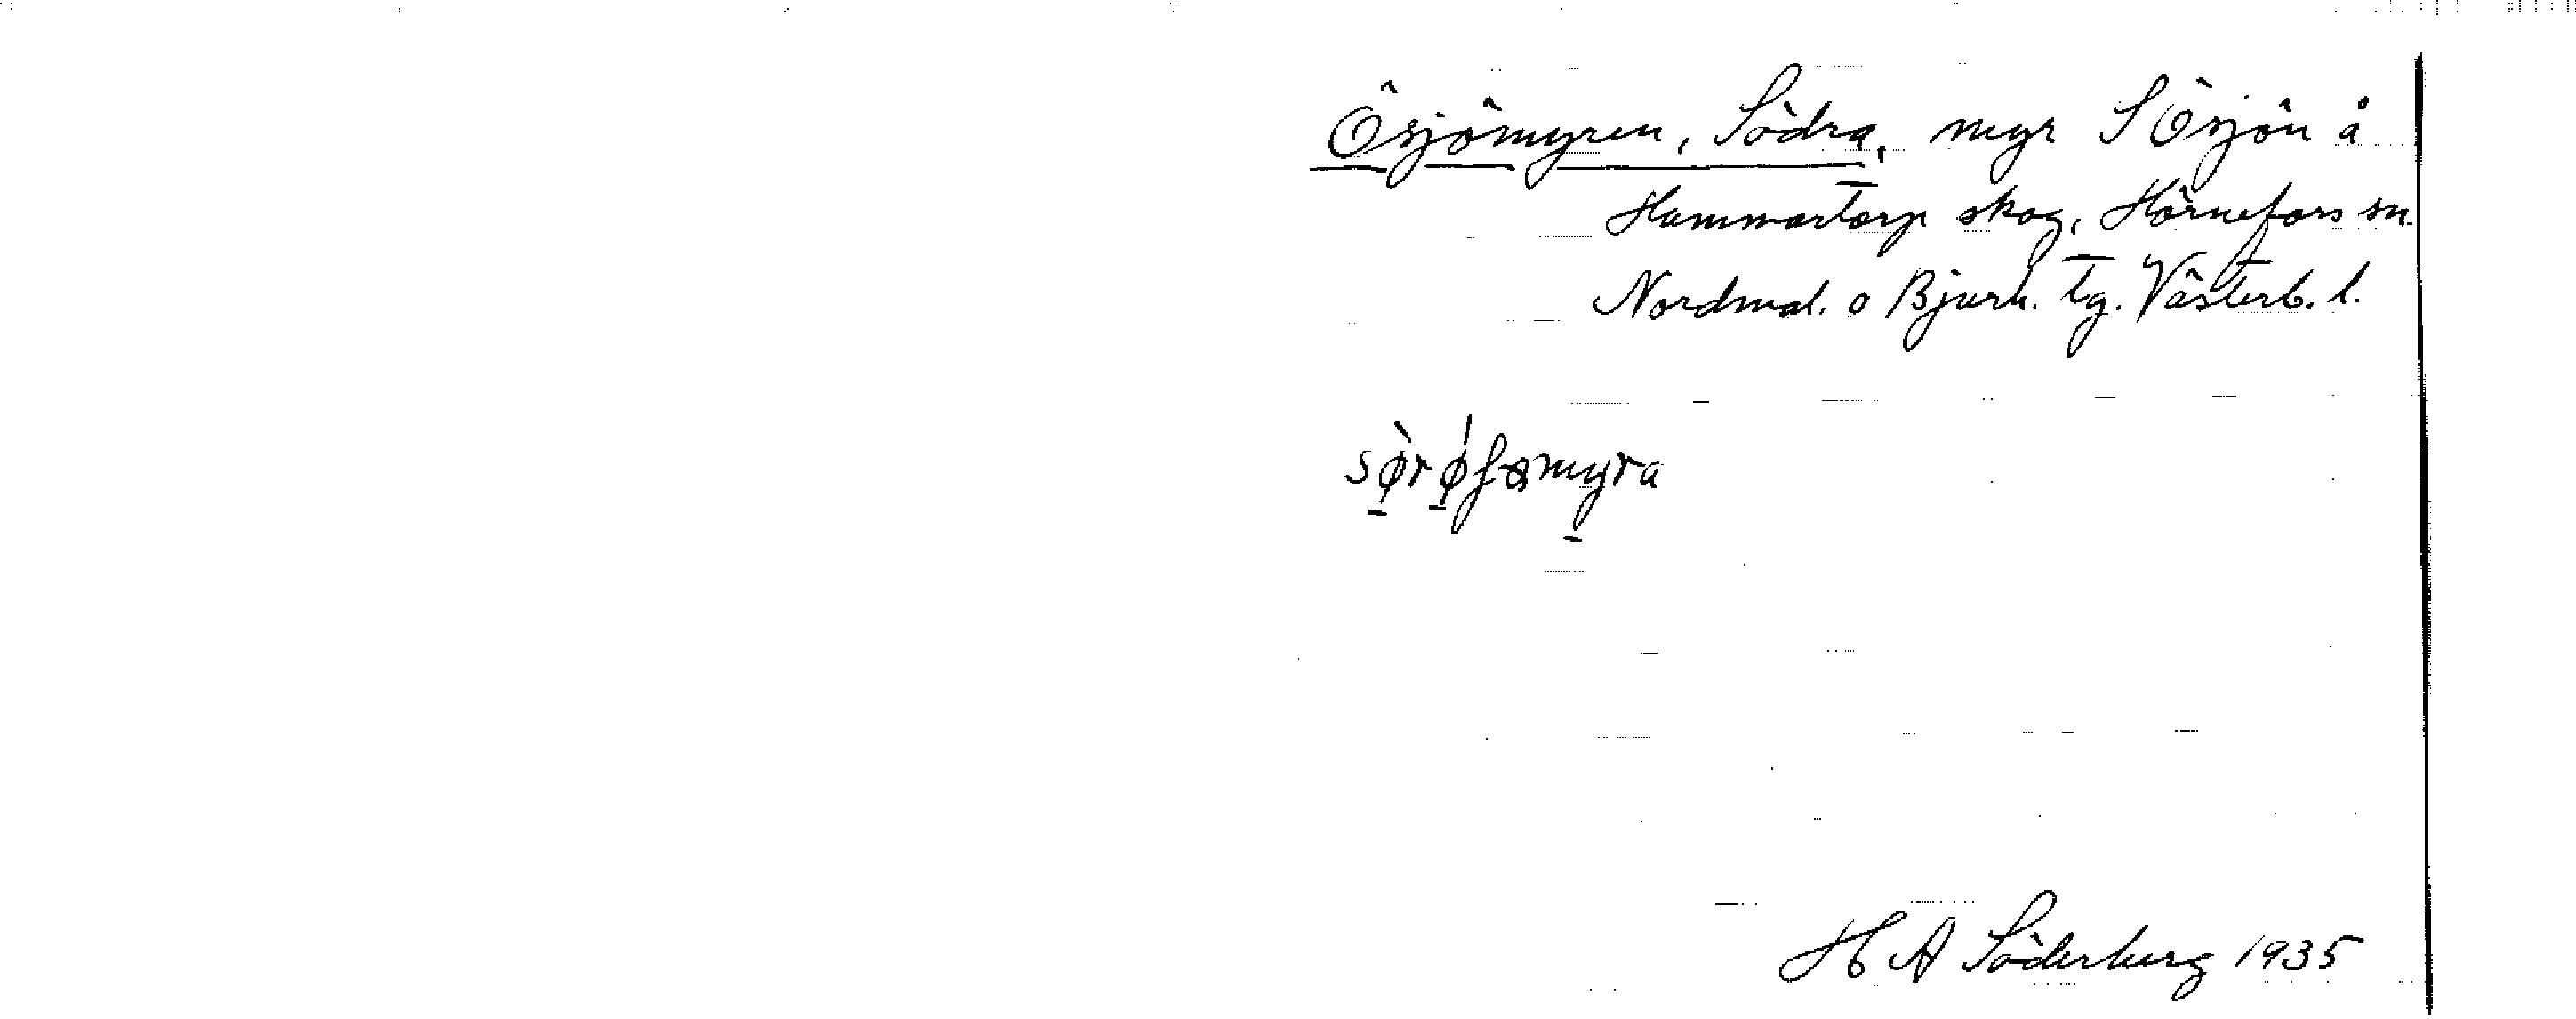 Ösjömyren, Södra, myr S Ösjön å
Hammartorp skog, Hörnefors sn.
Nordmal. o Bjurh. tg. Västerb. l.
H A Söderberg 1935